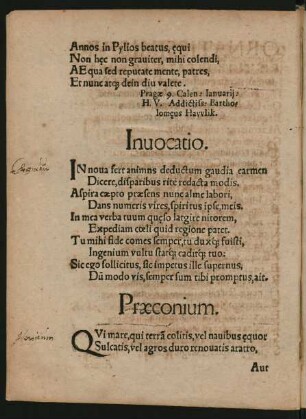 Annos in Pylios beatus, equi
Non hęc non grauiter, mihi colendi,
AEqua sed reputate mente, patres,
Et nunc atq; dein diu valete.
Pragæ 9. Calen: Ianuarij:
H. V. Addictiss: Bartho
lomęus Havvlik.
Inuocatio.
IN noua fert animns deductum gaudia carmen
Dicere, disparibus rite redacta modis.
Aspira cæpto præsens nunc alme labori,
Dans numeris vires, spiritus ipse, meis.
In mea verba tuum quęso largire nitorem,
Expediam cœli quid regione patet.
Tu mihi fide comes semper, tu duxq; fuisti,
Ingenium vultu statq; caditq; tuo:
Sic ego sollicitus, sic impetus ille supernus,
Dū modo vis, semper sum tibi promptus, ait.
Præconium.
QVi mare, qui terrā colitis, vel nauibus ęquor
Sulcatis, vel agros duro renouatis aratro,
Aut